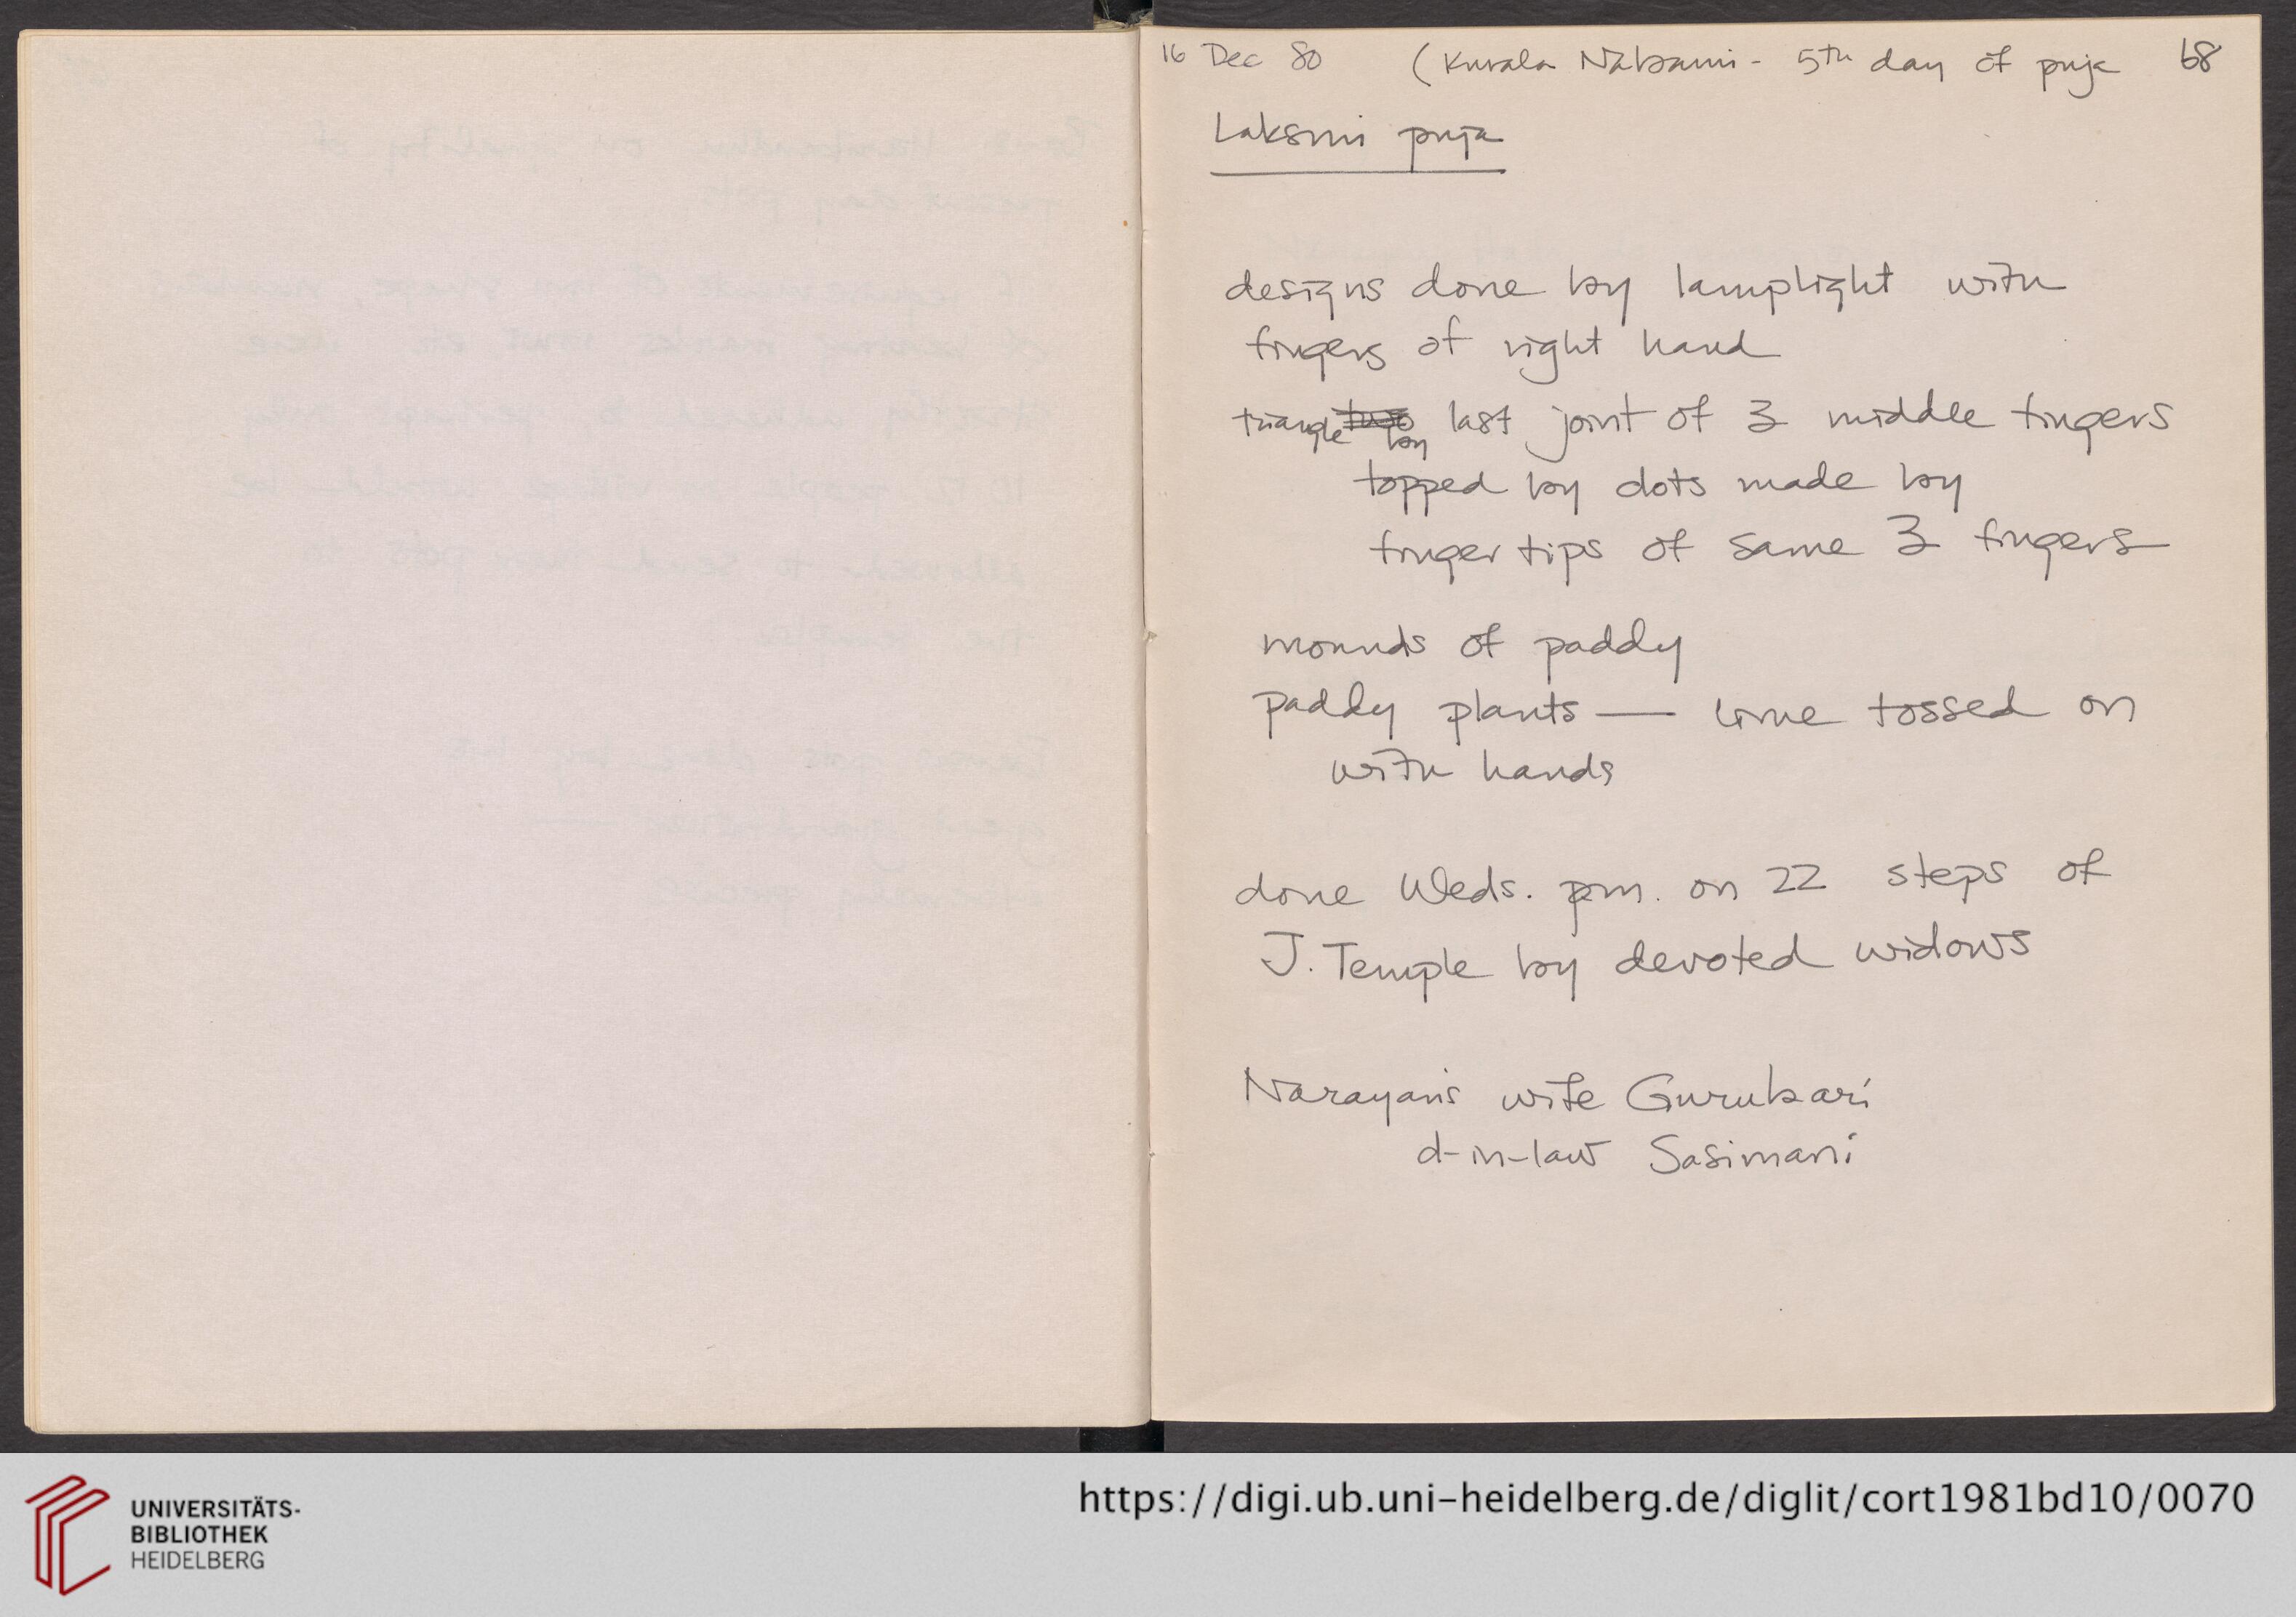 16 Dec 80 (Kurala Nabami - 5th day of puja 68
Laksmi puja
designs done by lamplight with
fingers of right hand
triangle by last joint of 3 middle fingers
topped by dots made by
finger tips of same 3 fingers
mounds of paddy
paddy plants — lime tossed on
with hands
done Weds. pm. on 22 steps of
J. Temple by devoted widows
Narayan's wife Gurubari
d-in-law Sasimani
UNIVERSITÄTS-
BIBLIOTHEK
HEIDELBERG
https://digi.ub.uni-heidelberg.de/diglit/cort1981bd10/0070